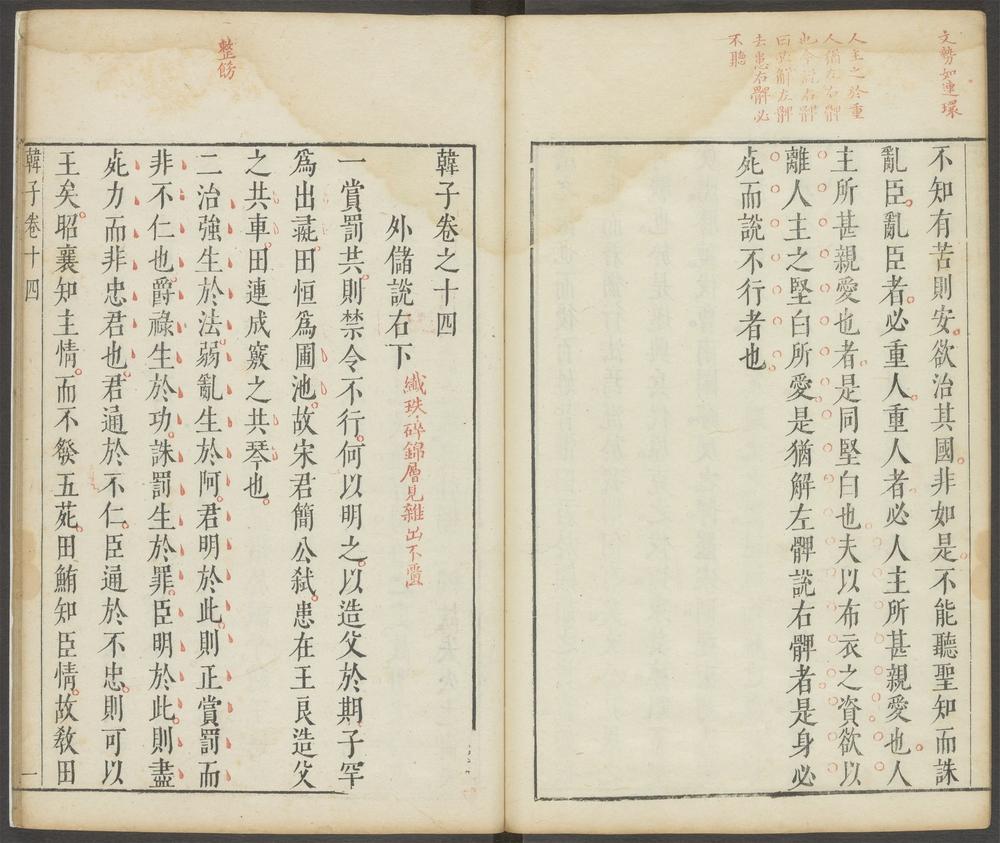 文勢如連環
人主之於重
人猶左右髀
也今説右髀
曰必解左髀
去患右髀必
不聽
不知有苦則安欲治其國非如是不能聽聖知而誅
亂臣亂臣者必重人重人者必人主所甚親愛也人
主所甚親愛也者是同堅白也夫以布衣之資欲以
離人主之堅白所愛是猶解左髀說右髀者是身必
死而說不行者也
整飭
韓子卷之十四
外儲說右下
纖珠碎錦層見雜出不
一賞罰共則禁令不行何以明之以造父於期子罕
爲出彘田恒爲圃池故宋君簡公弑患在王良造父
之共車田連成竅之共琴也
二治強生於法弱亂生於阿君明於此則正賞罰而
非不仁也爵祿生於功誅罰生於罪臣明於此則盡
死力而非忠君也君通於不仁臣通於不忠則可以
王矣昭襄知主情而不發五苑田鮪知臣情故敎田
韓子卷十四
一